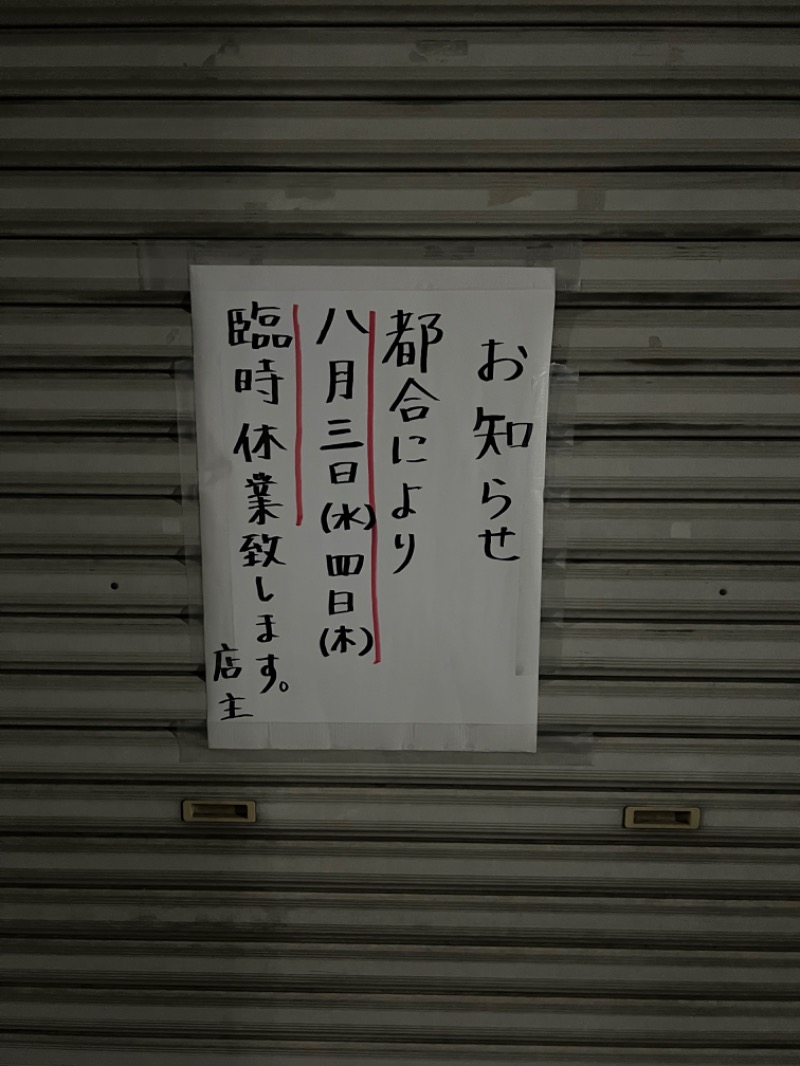 お知らせ
都合により
八月三日(水)四日(木)
臨時休業致します。
店主